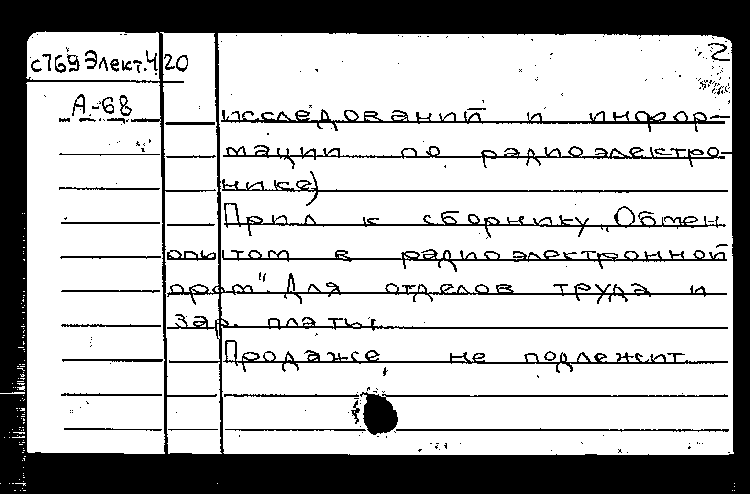 2
с769 Элект. Ч 20
А-68
исследований и инфор-
мации по радиоэлектро-
нике)
Прил к сборнику „Обмен
опытом в радиоэлектронной
пром". Для отделов труда и
зар. платы.
Продаже не подлежит